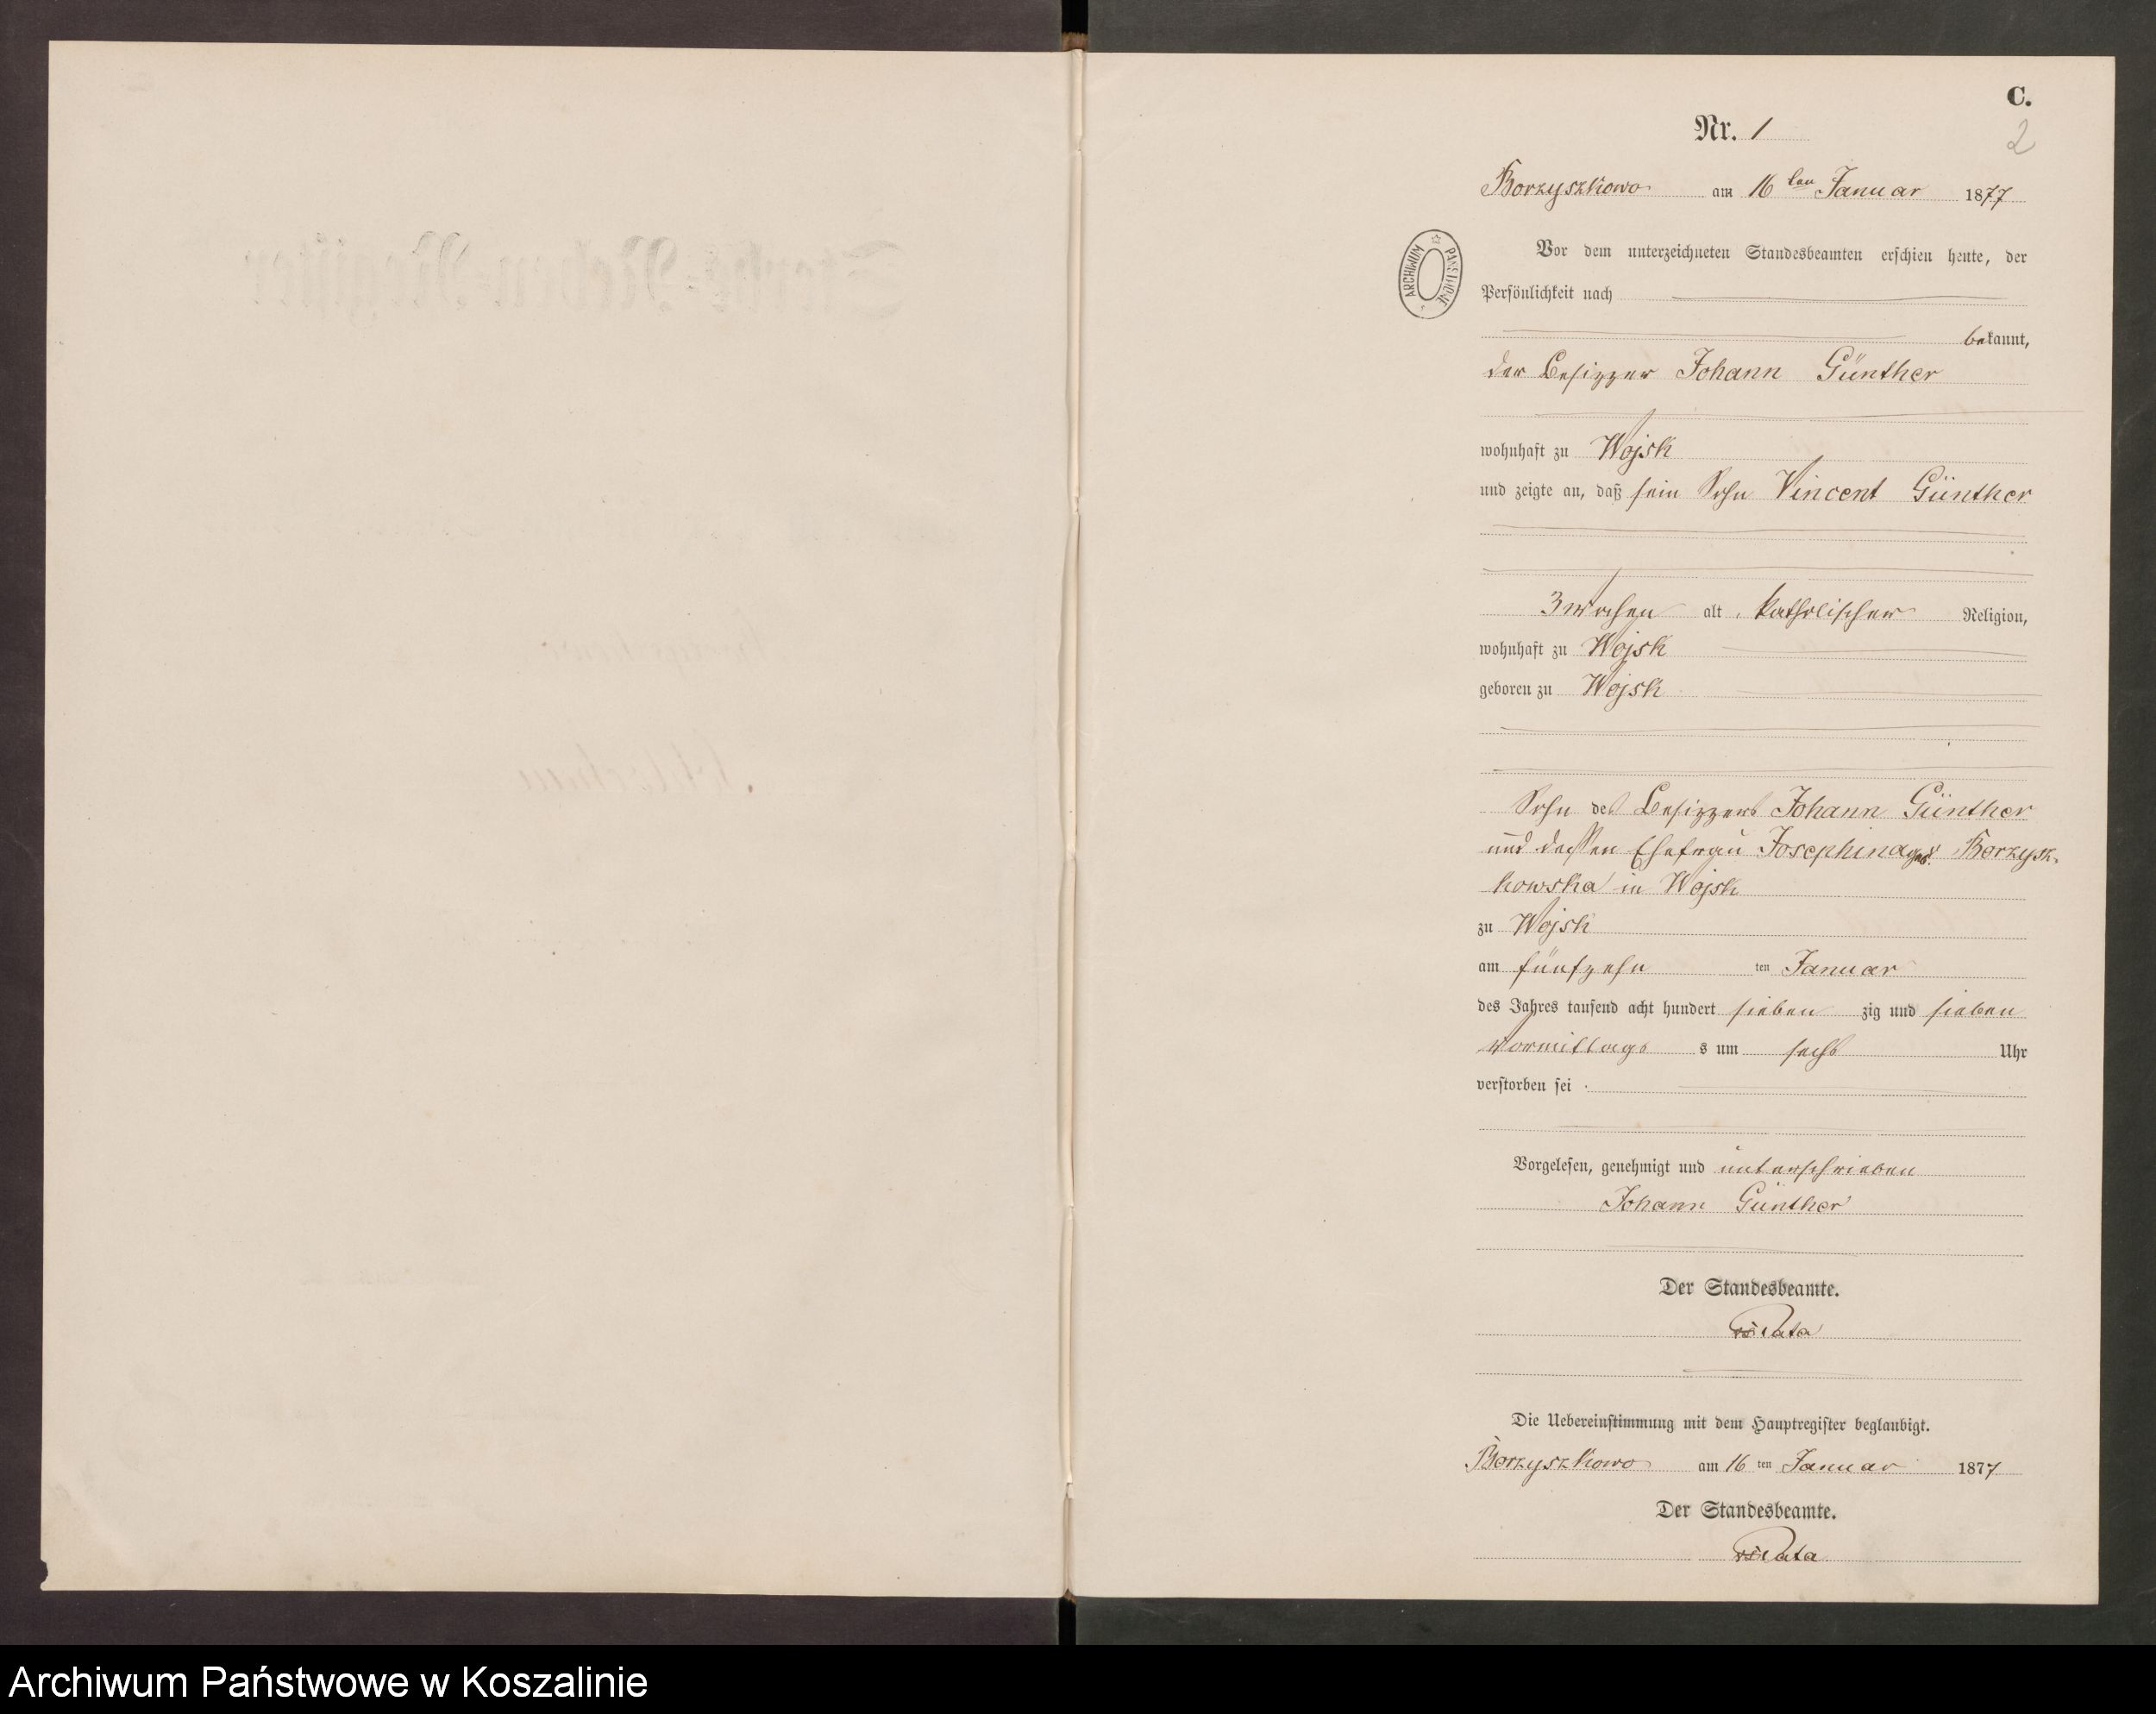 C.
Nr. 1
2
Borzyszkowo am 16 ten Januar 1877
ARCHIWUM PAŃSTWOWE
Vor dem unterzeichneten Standesbeamten erschien heute, der
Persönlichkeit nach
bekannt,
der Besizzer Johann Günther
wohnhaft zu Wojsk
und zeigte an, daß sein Sohn Vincent Günther
3 Wochen alt, katholischer Religion,
wohnhaft zu Wojsk
geboren zu Wojsk
Sohn des Besizzers Johann Günther
und dessen Ehefrau Josephina geb. Borzysz-
kowska in Wojsk
zu Wojsk
am fünfzehn ten Januar
des Jahres tausend acht hundert sieben zig und sieben
Vormittags s um sechs Uhr
verstorben sei
Vorgelesen, genehmigt und unterschrieben
Johann Günther
Der Standesbeamte.
Die Uebereinstimmung mit dem Hauptregister beglaubigt.
Borzyszkowo am 16 ten Januar 1877
Der Standesbeamte.
Archiwum Państwowe w Koszalinie